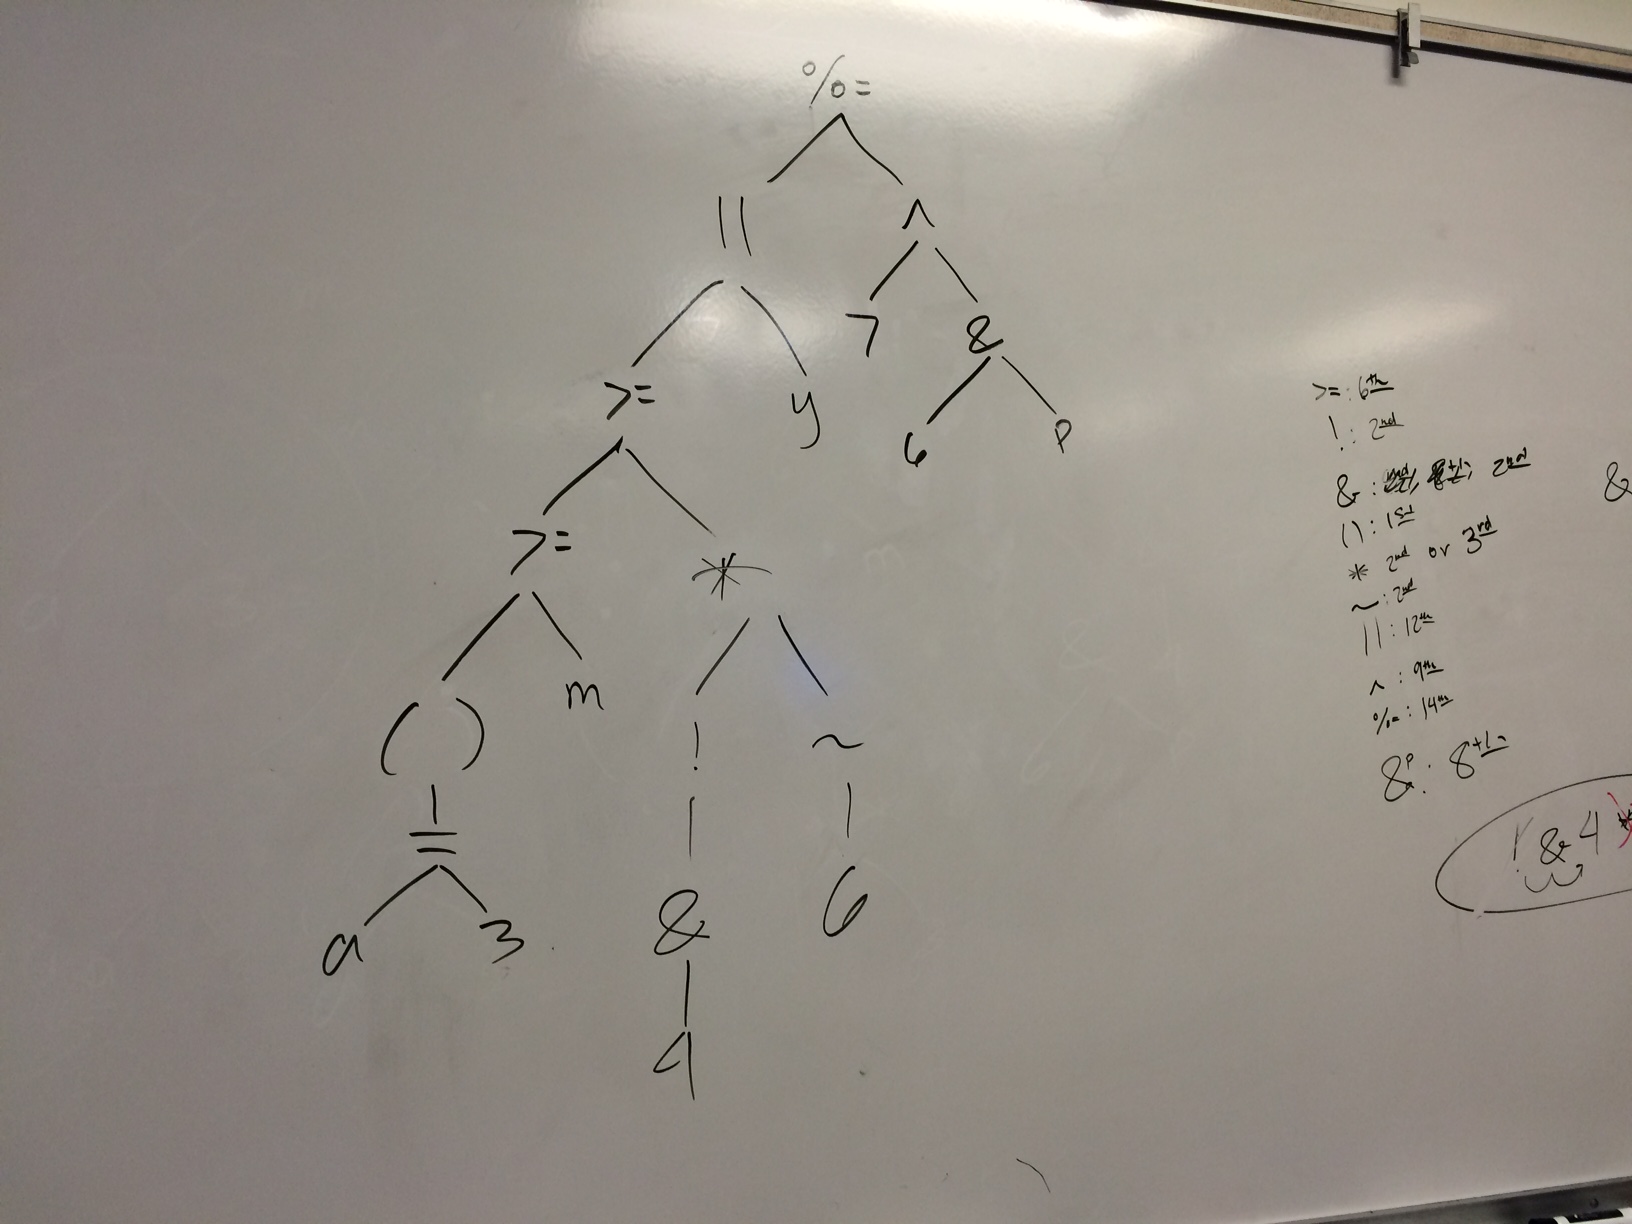 %=
|| ^
7 &
>= y 6 p
>= *
( ) m ! ~
= & 6
a 3
4
>= : 6th
! : 2nd
& : 2nd
() : 1st
* 2nd or 3rd
~ : 2nd
|| : 12th
^ : 9th
%= : 14th
&P : 8th
! & 4 *
&